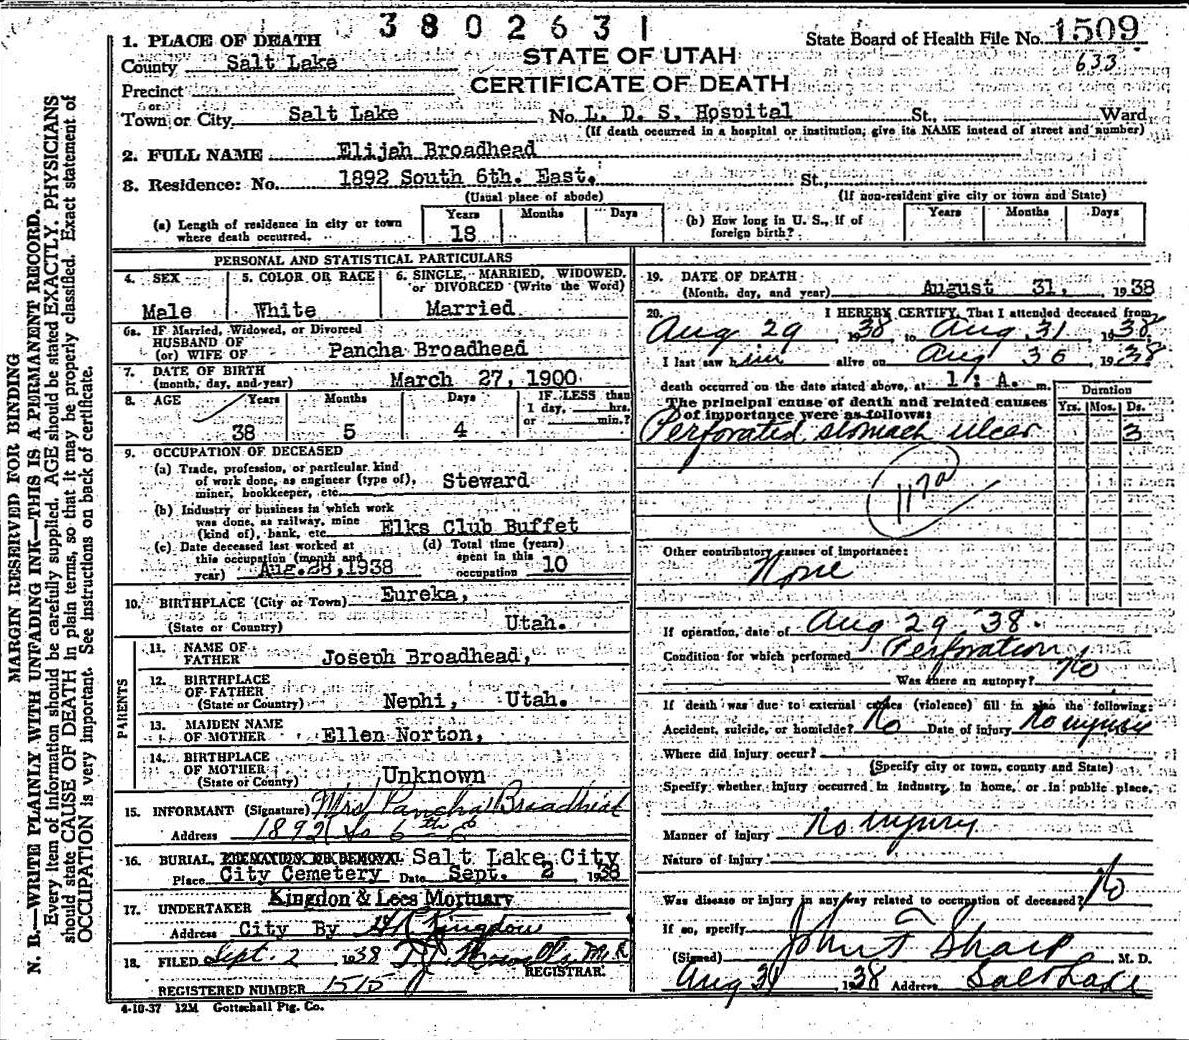 3802631
1. PLACE OF DEATH
State Board of Health File No. 1509
STATE OF UTAH
633
County Salt Lake
CERTIFICATE OF DEATH
Precinct
or
Town or City Salt Lake No. L. D. S. Hospital St., Ward
(If death occurred in a hospital or institution, give its NAME instead of street and number)
2. FULL NAME Elijah Broadhead
3. Residence: No. 1892 South 6th. East. St.,
(Usual place of abode) (If non-resident give city or town and State)
(a) Length of residence in city or town where death occurred. Years 18 Months Days
(b) How long in U. S., if of foreign birth? Years Months Days
MARGIN RESERVED FOR BINDING
N. B.—WRITE PLAINLY WITH UNFADING INK—THIS IS A PERMANENT RECORD.
Every item of information should be carefully supplied. AGE should be stated EXACTLY. PHYSICIANS
should state CAUSE OF DEATH in plain terms, so that it may be properly classified. Exact statement of
OCCUPATION is very important. See instructions on back of certificate.
PERSONAL AND STATISTICAL PARTICULARS
4. SEX Male
5. COLOR OR RACE White
6. SINGLE, MARRIED, WIDOWED, or DIVORCED (Write the Word) Married
6a. IF Married, Widowed, or Divorced
HUSBAND OF
(or) WIFE OF Pancha Broadhead
7. DATE OF BIRTH
(month, day, and year) March 27, 1900
8. AGE Years 38 Months 5 Days 4 IF LESS than 1 day, hrs. or min.?
9. OCCUPATION OF DECEASED
(a) Trade, profession, or particular kind
of work done, as engineer (type of),
miner, bookkeeper, etc. Steward
(b) Industry or business in which work
was done, as railway, mine
(kind of), bank, etc. Elks Club Buffet
(c) Date deceased last worked at
this occupation (month and
year) Aug. 28, 1938
(d) Total time (years)
spent in this
occupation 10
10. BIRTHPLACE (City or Town) Eureka,
(State or Country) Utah.
PARENTS
11. NAME OF
FATHER Joseph Broadhead,
12. BIRTHPLACE
OF FATHER
(State or Country) Nephi, Utah.
13. MAIDEN NAME
OF MOTHER Ellen Norton,
14. BIRTHPLACE
OF MOTHER
(State or County) Unknown
15. INFORMANT (Signature) Mrs Pancha Broadhead
Address 1892 So 6th E
16. BURIAL, CREMATION OR REMOVAL Salt Lake City
Place City Cemetery Date Sept. 2, 1938
17. UNDERTAKER Kingdon & Lees Mortuary
Address City By Kingdon
18. FILED Sept. 2 1938 M.D.
REGISTRAR.
REGISTERED NUMBER 1515
4-10-37 12M Gottschall Ptg. Co.
19. DATE OF DEATH
(Month, day, and year) August 31, 1938
20. I HEREBY CERTIFY, That I attended deceased from
Aug 29, 1938, to Aug 31, 1938
I last saw him alive on Aug 30 1938
death occurred on the date stated above, at 1: A. m.
The principal cause of death and related causes
of importance were as follows:
Duration
Yrs. Mos. Ds.
Perforated stomach ulcer 3
117a
Other contributory causes of importance:
None
If operation, date of Aug 29 '38.
Condition for which performed Perforation
Was there an autopsy? No
If death was due to external causes (violence) fill in also the following:
Accident, suicide, or homicide? No Date of injury No injury
Where did injury occur?
(Specify city or town, county and State)
Specify whether injury occurred in industry, in home, or in public place,
Manner of injury No injury
Nature of injury
Was disease or injury in any way related to occupation of deceased? No
If so, specify
(Signed) John F Sharp, M. D.
Aug 31 1938 Address Salt Lake